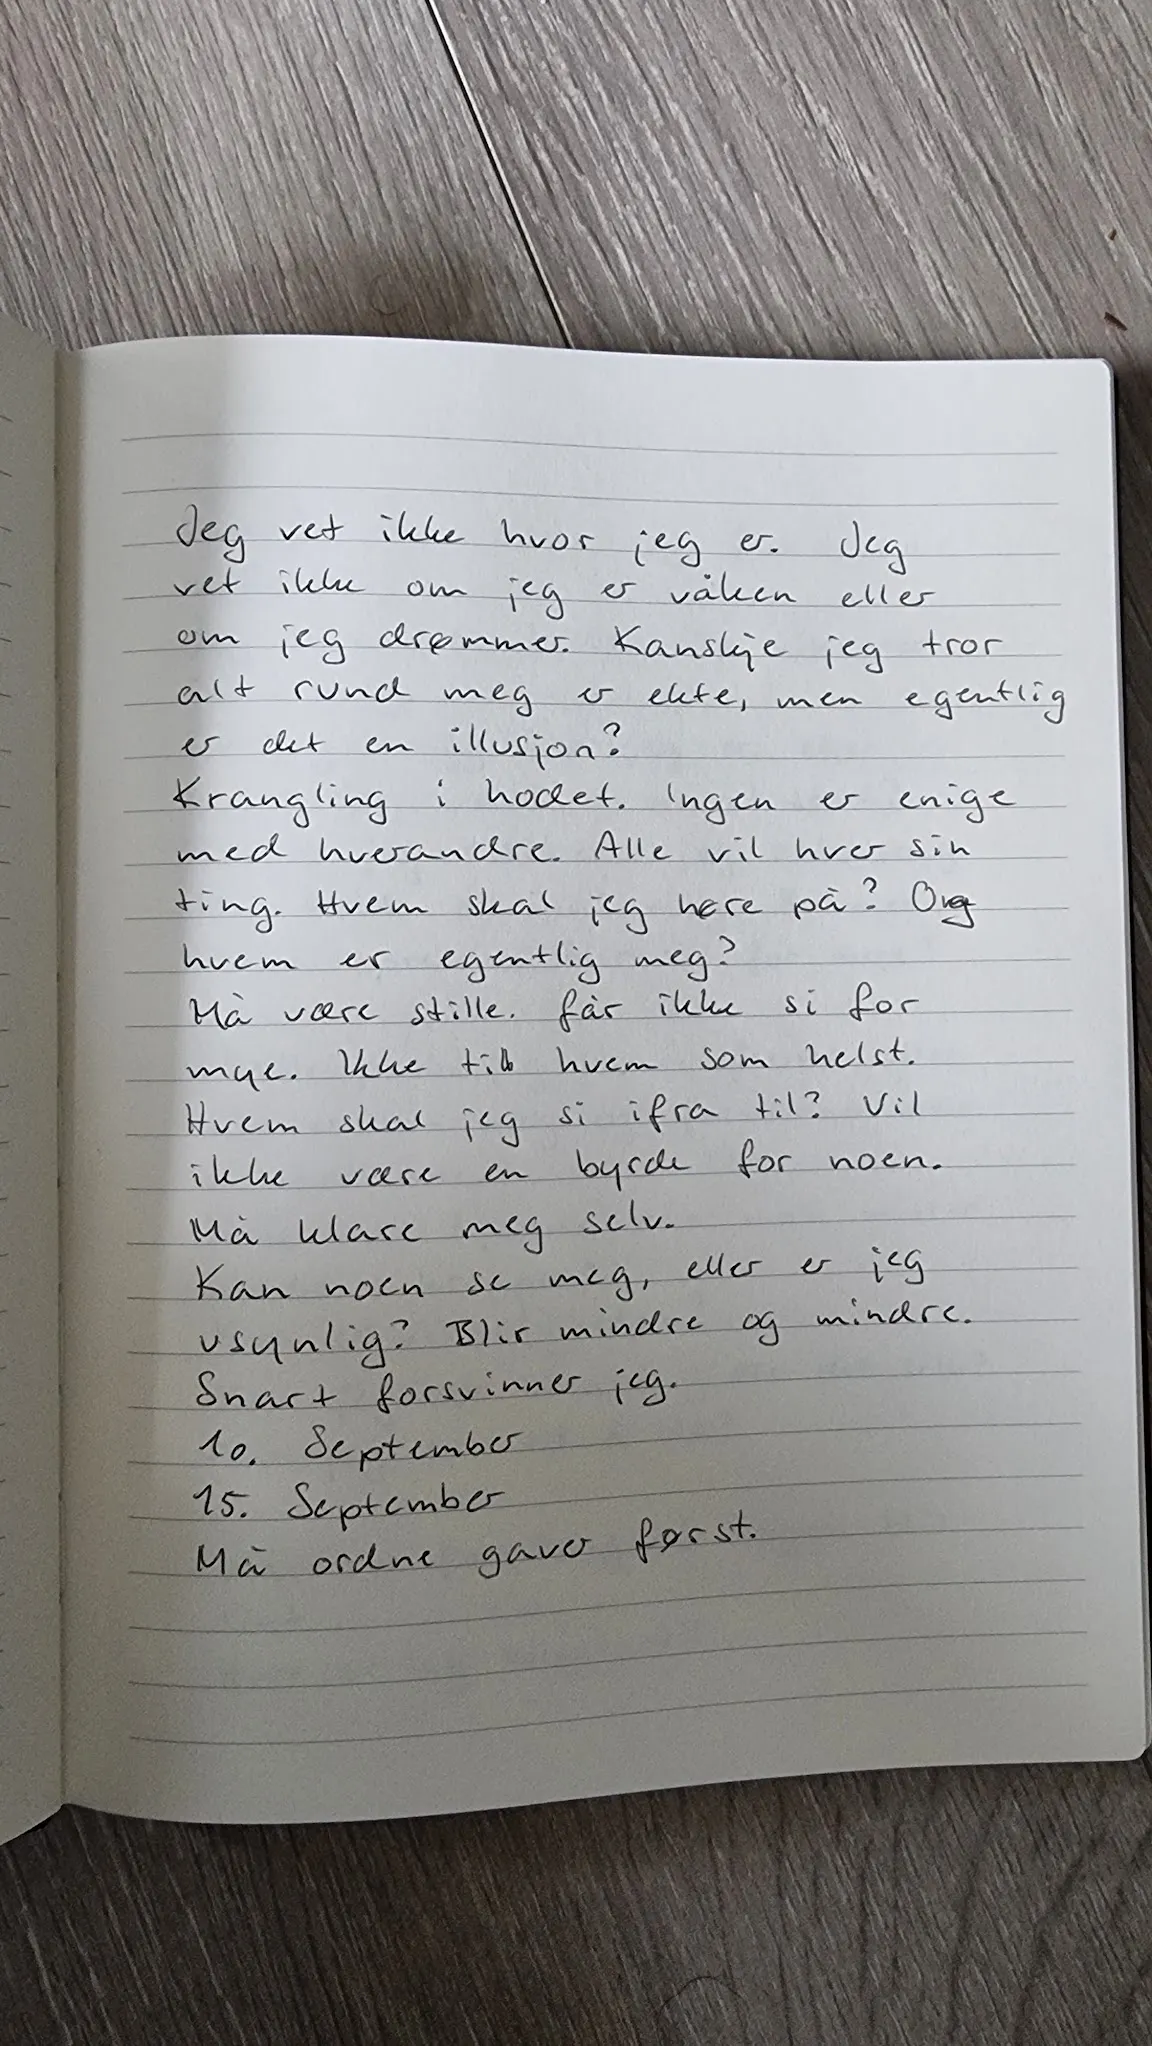 Jeg vet ikke hvor jeg er. Jeg
vet ikke om jeg er våken eller
om jeg drømmer. Kanskje jeg tror
alt rund meg er ekte, men egentlig
er det en illusjon?
Krangling i hodet. Ingen er enige
med hverandre. Alle vil hver sin
ting. Hvem skal jeg høre på? Og
hvem er egentlig meg?
Må være stille. får ikke si for
mye. Ikke til hvem som helst.
Hvem skal jeg si ifra til? Vil
ikke være en byrde for noen.
Må klare meg selv.
Kan noen se meg, eller er jeg
usynlig? Blir mindre og mindre.
Snart forsvinner jeg.
10. September
15. September
Må ordne gaver først.